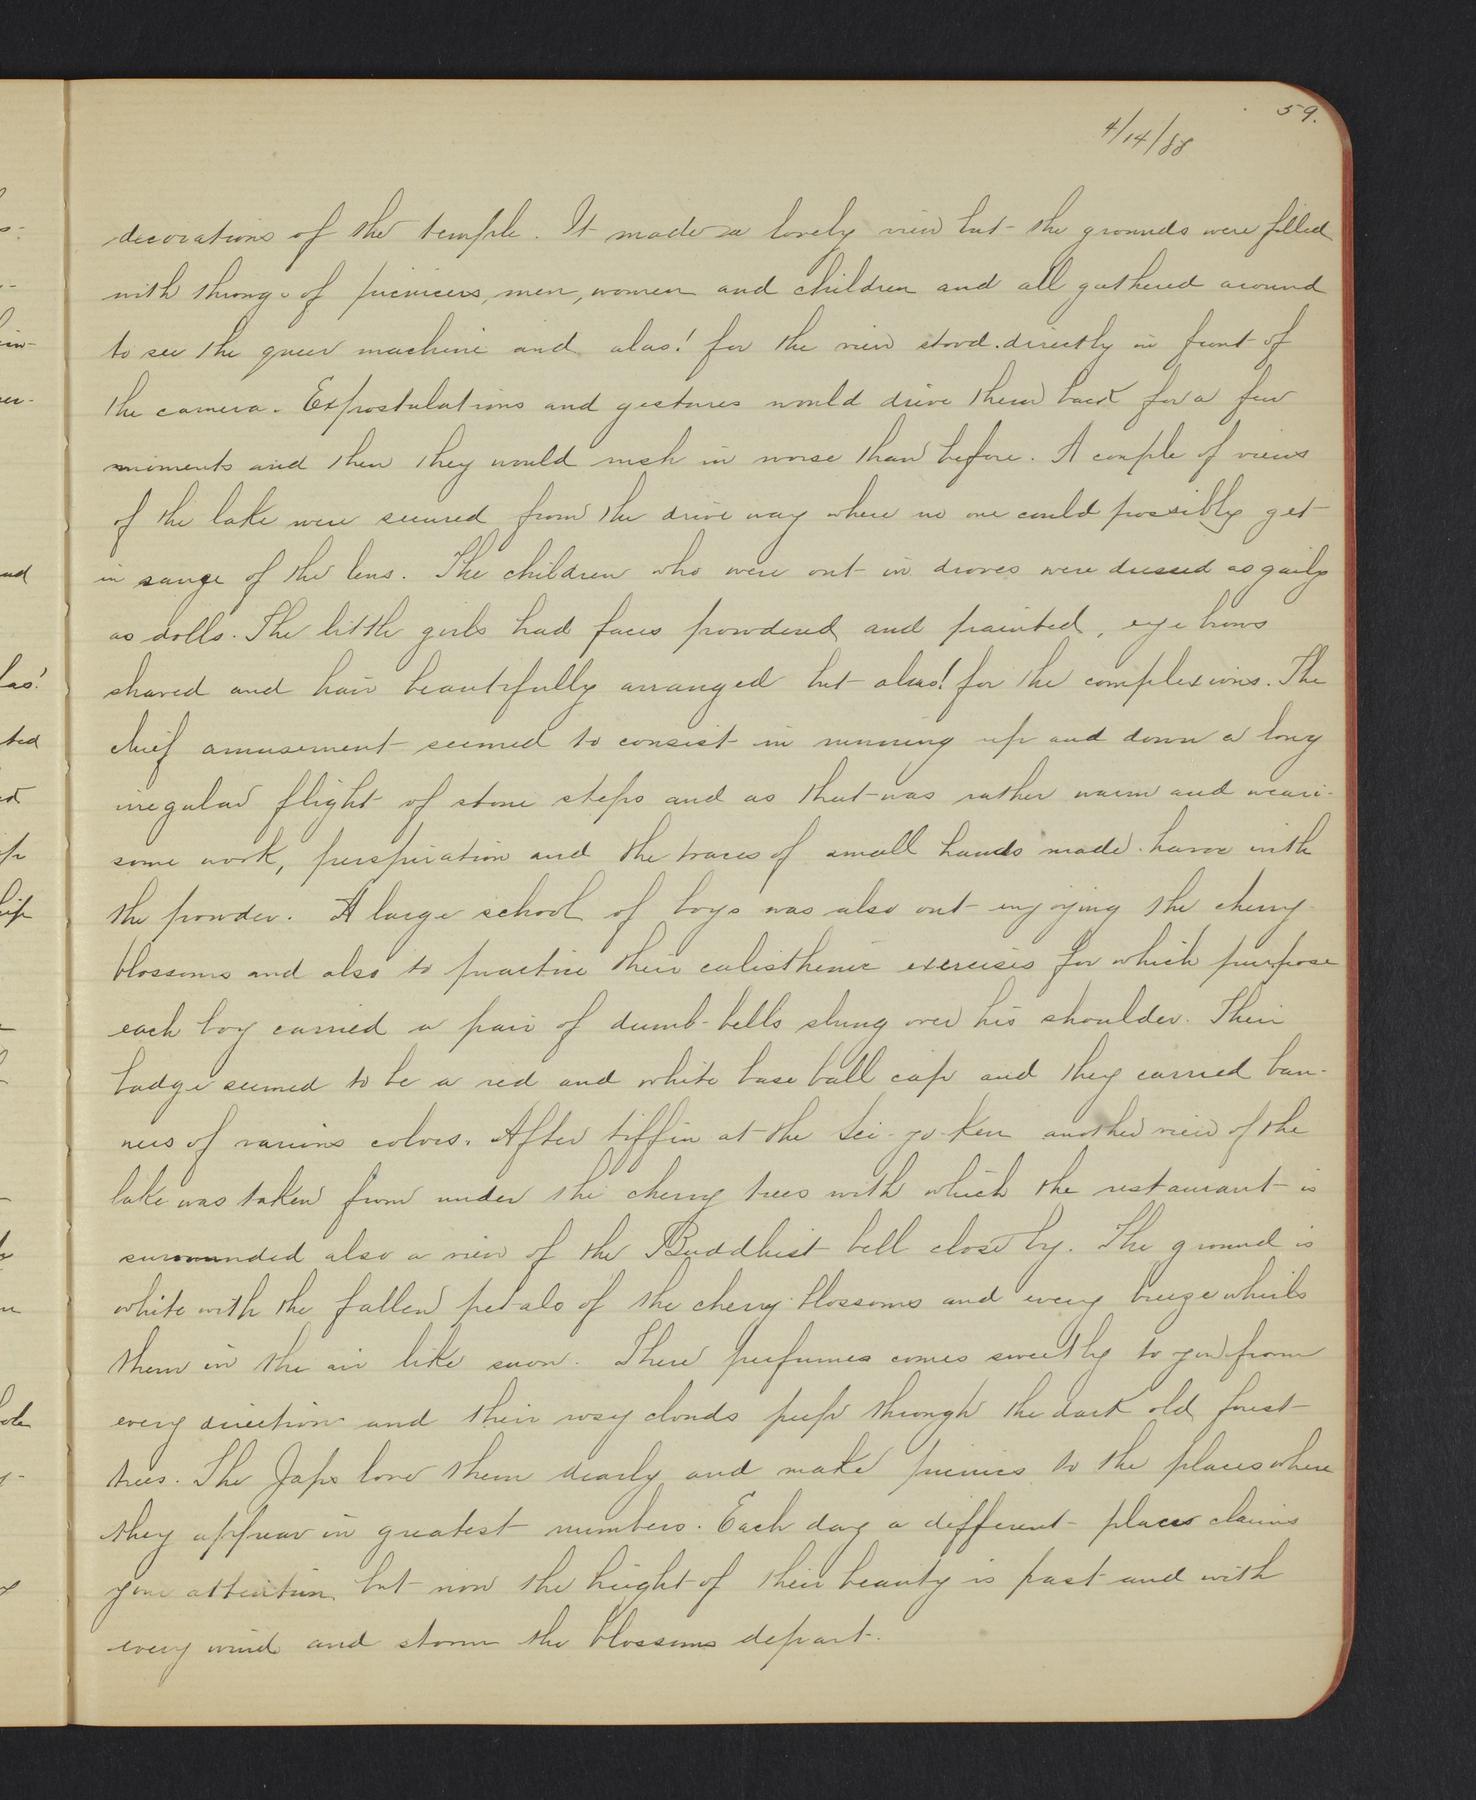 59.
4/14/88
decorations of the temple. It made a lovely view but the grounds were filled
with throngs of picnicers, men, women and children and all gathered around
to see the queer machine and alas! for the view stood directly in front of
the camera. Expostulations and gestures would drive them back for a few
moments and then they would rush in worse than before. A couple of views
of the lake were secured from the drive way where no one could possibly get
in range of the lens. The children who were out in droves were dressed as gaily
as dolls. The little girls had faces powdered and painted, eye brows
shaved and hair beautifully arranged but alas! for the complexions. The
chief amusement seemed to consist in running up and down a long
irregular flight of stone steps and as that was rather warm and weari-
some work, perspiration and the traces of small hands made havoc with
the powder. A large school of boys was also out enjoying the cherry
blossoms and also to practice their calisthenic exercises for which purpose
each boy carried a pair of dumb-bells slung over his shoulder. Their
badge seemed to be a red and white base ball cap and they carried ban-
ners of various colors. After tiffin at the Sei-yo-Ken another view of the
lake was taken from under the cherry trees with which the restaurant is
surrounded also a view of the Buddhist bell close by. The ground is
white with the fallen petals of the cherry blossoms and every breeze whirls
them in the air like snow. There perfumes comes sweetly to you from
every direction and their rosy clouds peep through the dark old forest
trees. The Japs love them dearly and make picnics to the places where
they appear in greatest numbers. Each day a different place claims
your attention but now the height of their beauty is past and with
every wind and storm the blossoms depart.